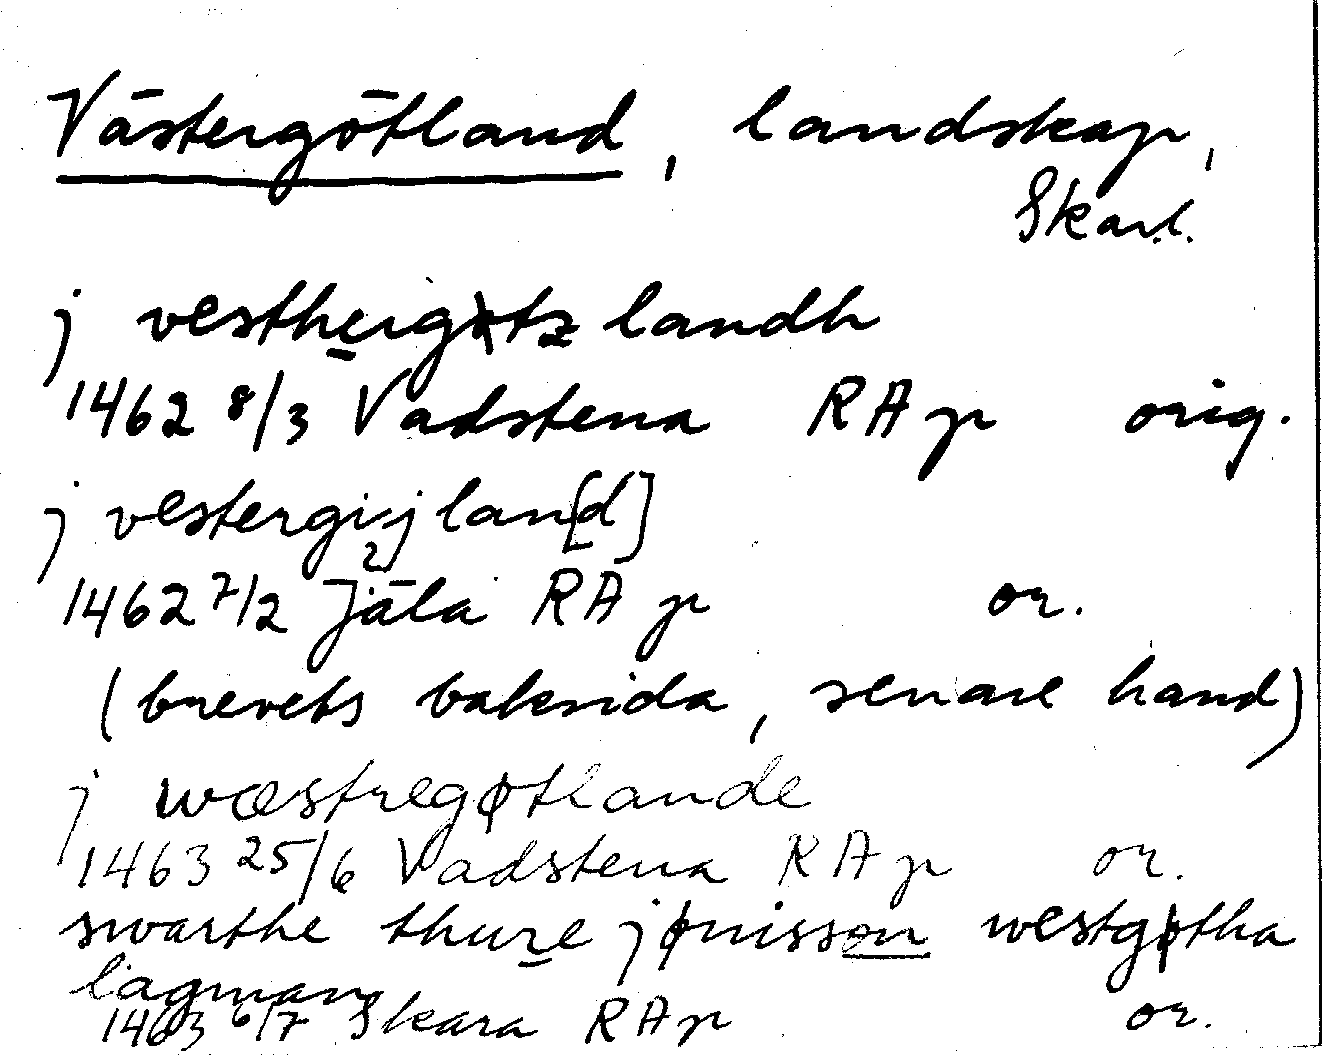 Västergötland, landskap,
Skarl.
j vesthergøtz landh
1462 8/3 Vadstena RAp orig.
j vestergijlan[d]
1462 7/2 Jäla RAp or.
(brevets baksida, senare hand)
j wæstregøtlande
1463 25/6 Vadstena RAp or.
swarthe thure jønisson westgøtha
lagman
1463 6/7 Skara RAp or.